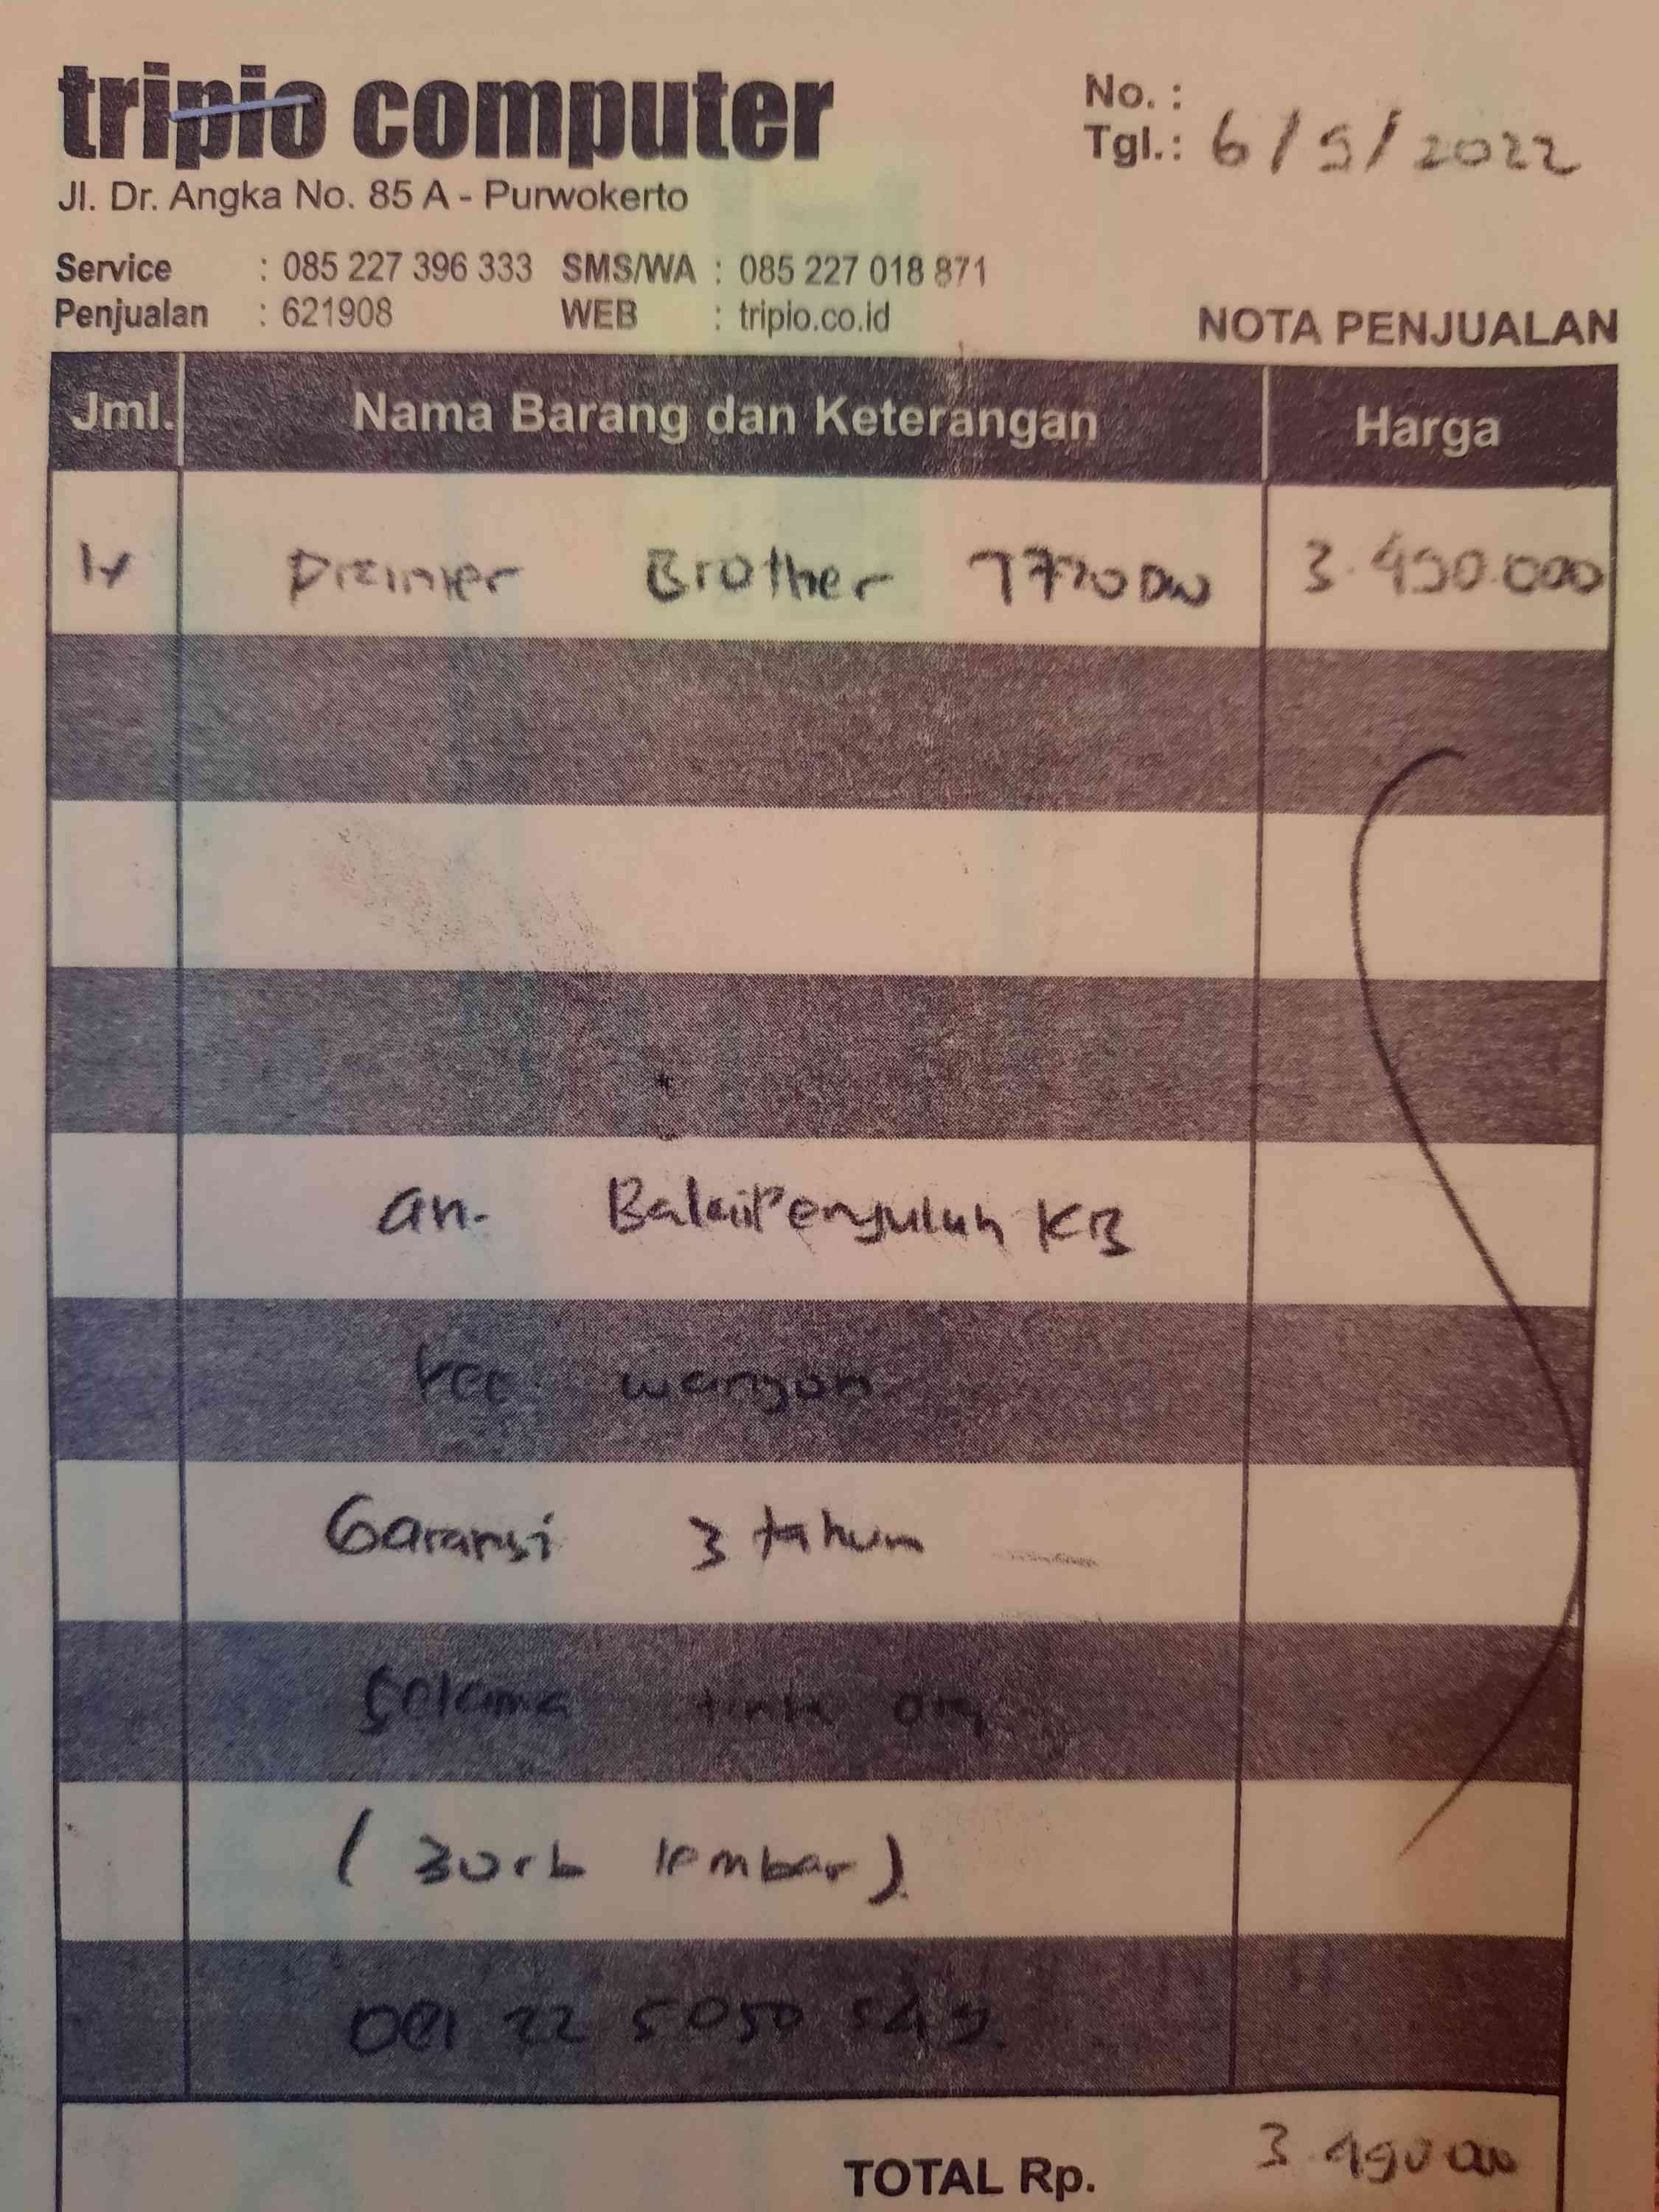 tripio computer
No. :
Tgl.: 6/5/2022
Jl. Dr. Angka No. 85 A - Purwokerto
Service : 085 227 396 333 SMS/WA : 085 227 018 871
Penjualan : 621908 WEB : tripio.co.id
NOTA PENJUALAN
Jml. Nama Barang dan Keterangan Harga
1x Printer Brother T720DW 3.490.000
an. Balai Penyuluh KB
Kec. Wangon
Garansi 3 tahun
Selama tinta ori
(30rb lembar)
TOTAL Rp. 3.490.000